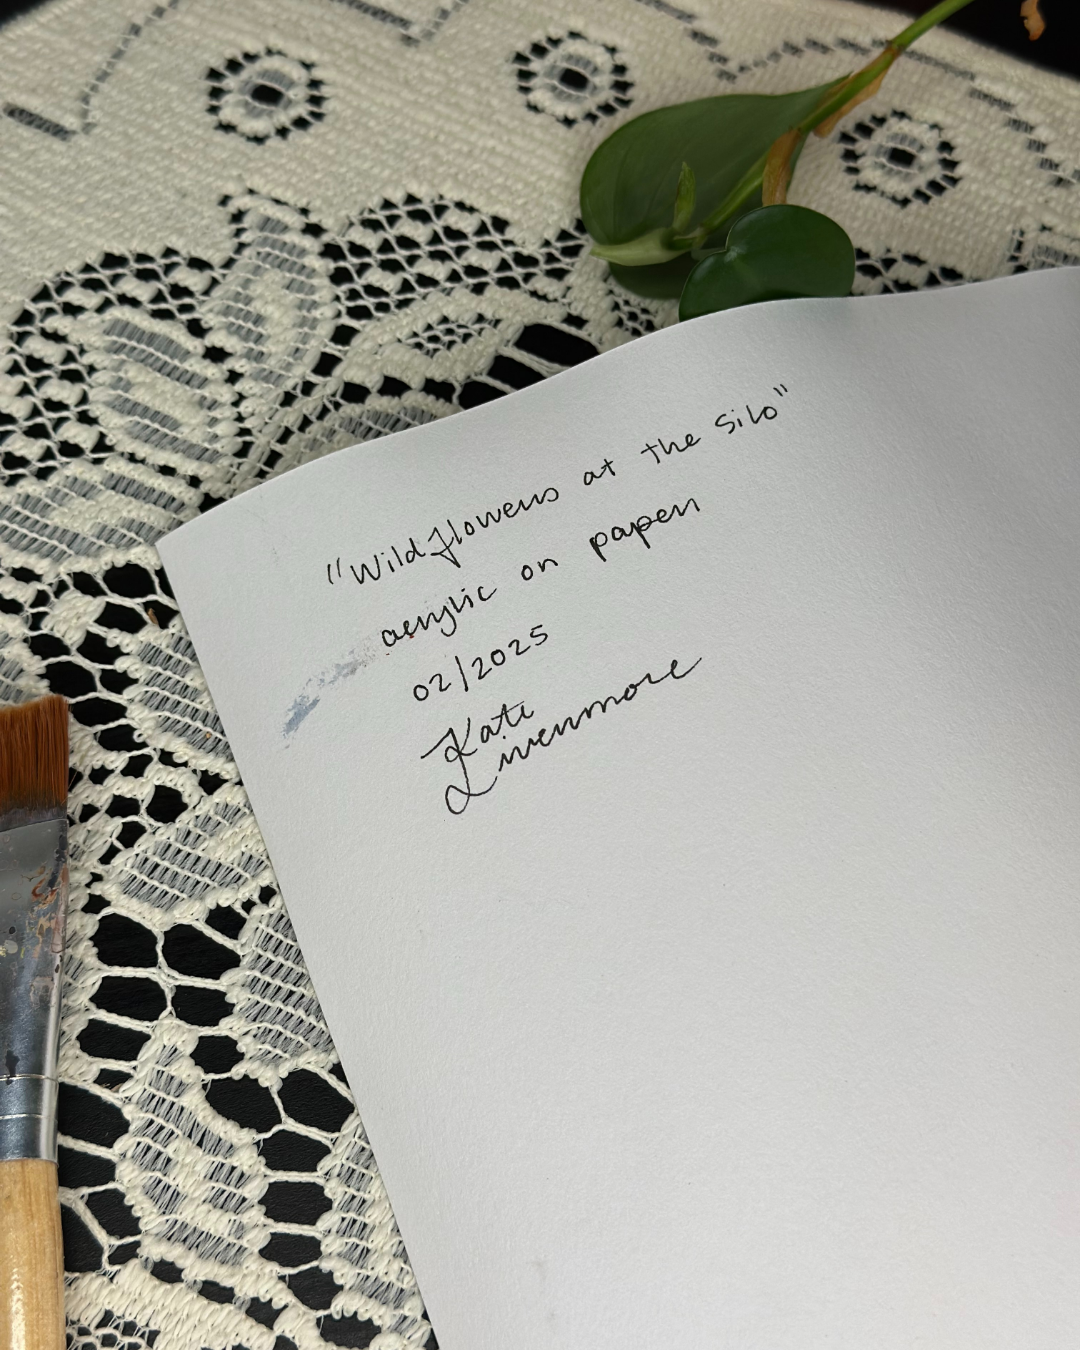 "Wildflowers at the Silo"
acrylic on paper
02/2025
Kate
Livenmore